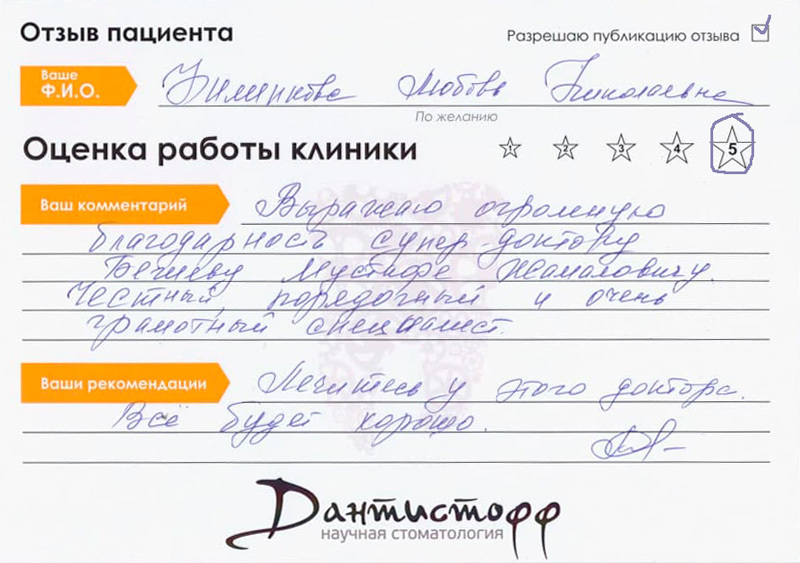 Отзыв пациента
Разрешаю публикацию отзыва
Ваше
Ф.И.О.
Любовь Николаевна
По желанию
Оценка работы клиники
1 2 3 4 5
Ваш комментарий
Выражаю огромную
благодарность супер-доктору
Бечиеву Мустафе Жамаловичу.
Честный, порядочный и очень
грамотный специалист.
Ваши рекомендации
Лечитесь у этого доктора.
Всё будет хорошо.
Дантистофф
научная стоматология